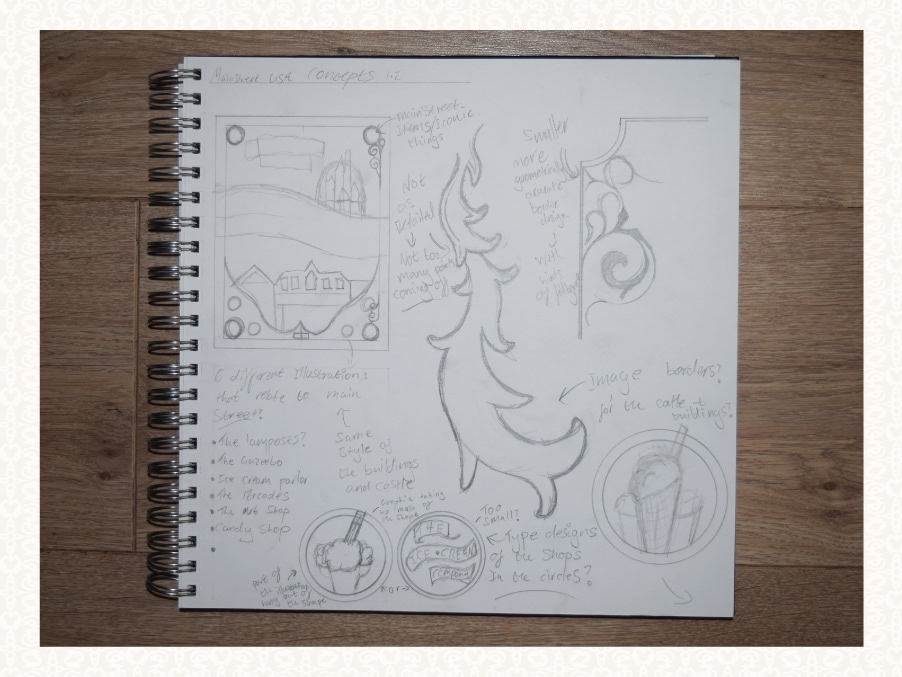 Mainstreet USA Concepts
mainstreet
Items/Iconic
things
Not
as
Detailed
Not too
many parts
coming off
Smaller
more
geometrical
border
design
with
of foliage
6 different Illustrations
that relate to main
Street?
• The lamposts?
• The Gazeebo
• Ice cream parlor
• The
• The Art Shop
• Candy Shop
•
Same
Style of
the buildings
and castle
Image borders?
for the castle +
buildings?
Graphic taking
up most of
the shape
part of
the
way out of
the shape
or
THE
ICE CREAM
COMPANY
Too
small?
Type designs
of the shops
In the circles?